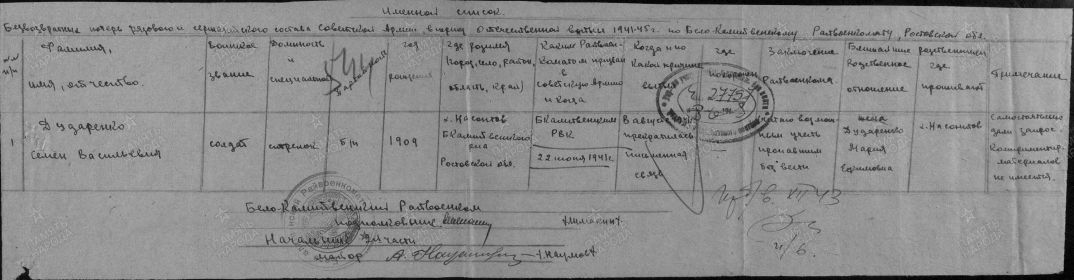 Именной список
Безвозвратных потерь рядового и сержантского состава Советской Армии в период Отечественной войны 1941-45г. по Бело-Калитвенскому Райвоенкомату, Ростовской обл.
№№ п/п
Фамилия,
имя, отчество.
Воинское
звание
Должность
и
специальность
год
рождения
Где родился
(город, село, район,
область, край)
Каким Райвоен-
коматом призван
в
советскую армию
и когда
Когда и по
какой причине
где
похоронен
Заключение
Райвоенкома.
Ближайшие родственники
Родственное
отношение
где
проживают
Примечание
1
Дударенко
Семен Васильевич
солдат
стрелок
б/п
1909
х. Насонтов
Бкалитвенского
р-на
Ростовской обл.
Бкалитвенским
РВК
22 июня 1941г.
В августе
прекратилась
письменная
связь
Считаю возмож-
ным учесть
пропавшим
без вести
жена
Дударенко
Мария
Ефимовна
х. Насонтов
Самостоятельно
материалов
не имеется.
27757
Пр/б/в. XII 43
Бело-Калитвенский Райвоенком
подполковник
Начальник 2 части
майор
/Наумов/